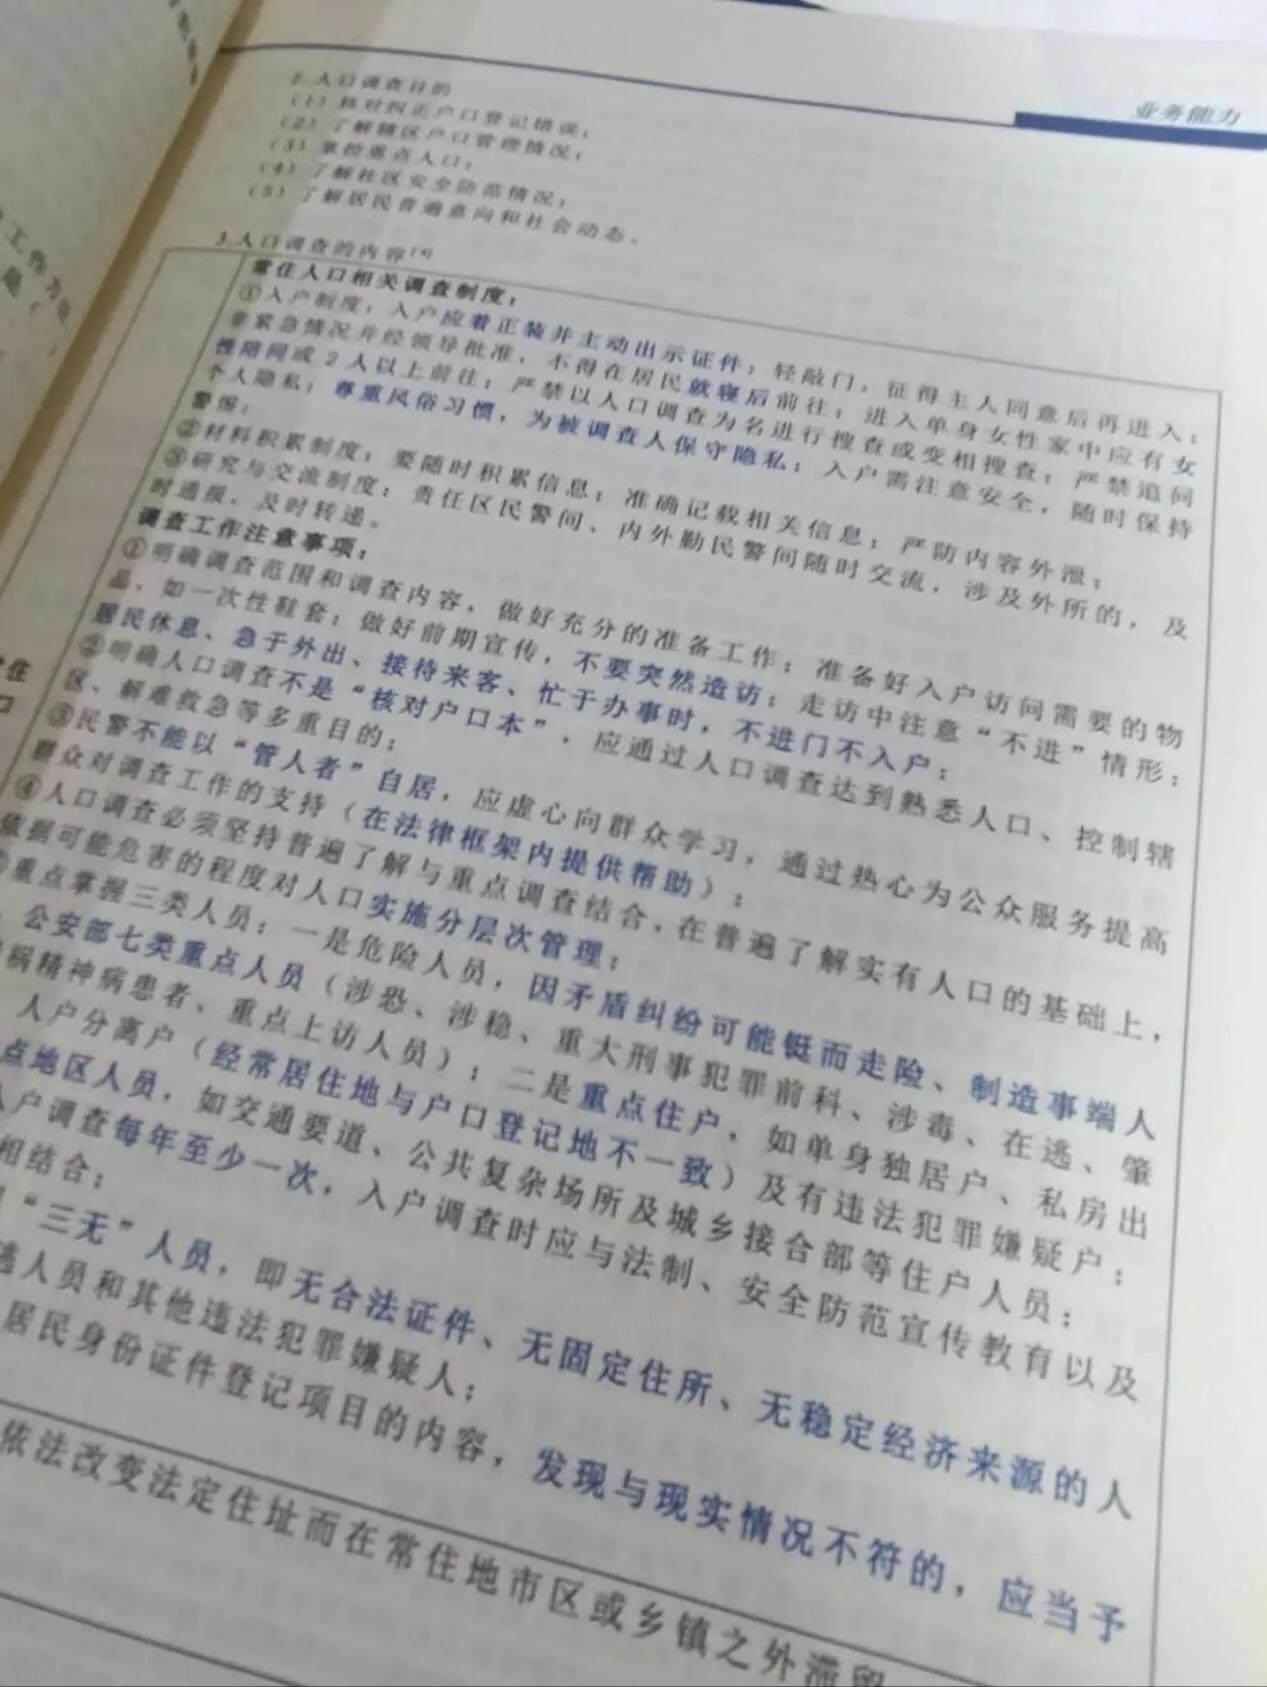 业务能力
2.人口调查目的
（1）核对纠正户口登记错误；
（2）了解辖区户口管理情况；
（3）掌控重点人口；
（4）了解社区安全防范情况；
（5）了解居民普遍意向和社会动态。
3.人口调查的内容
常住人口相关调查制度：
①入户制度：入户应着正装并主动出示证件；轻敲门，征得主人同意后再进入；
非紧急情况并经领导批准，不得在居民就寝后前往；进入单身女性家中应有女
性陪同或2人以上前往；严禁以人口调查为名进行搜查或变相搜查；严禁追问
个人隐私；尊重风俗习惯，为被调查人保守隐私；入户需注意安全，随时保持
警惕；
②材料积累制度：要随时积累信息；准确记载相关信息；严防内容外泄；
③研究与交流制度：责任区民警间、内外勤民警间随时交流，涉及外所的，及
时通报，及时转递。
调查工作注意事项：
①明确调查范围和调查内容，做好充分的准备工作；准备好入户访问需要的物
品，如一次性鞋套；做好前期宣传，不要突然造访；走访中注意“不进”情形：
居民休息、急于外出、接待来客、忙于办事时，不进门不入户；
②明确人口调查不是“核对户口本”，应通过人口调查达到熟悉人口、控制辖
区、解难救急等多重目的；
③民警不能以“管人者”自居，应虚心向群众学习，通过热心为公众服务提高
群众对调查工作的支持（在法律框架内提供帮助）；
④人口调查必须坚持普遍了解与重点调查结合，在普遍了解实有人口的基础上，
依据可能危害的程度对人口实施分层次管理；
重点掌握三类人员：一是危险人员，因矛盾纠纷可能铤而走险、制造事端人
公安部七类重点人员（涉恐、涉稳、重大刑事犯罪前科、涉毒、在逃、肇
祸精神病患者、重点上访人员）；二是重点住户，如单身独居户、私房出
人户分离户（经常居住地与户口登记地不一致）及有违法犯罪嫌疑户；
点地区人员，如交通要道、公共复杂场所及城乡接合部等住户人员；
入户调查每年至少一次，入户调查时应与法制、安全防范宣传教育以及
相结合；
“三无”人员，即无合法证件、无固定住所、无稳定经济来源的人
逃人员和其他违法犯罪嫌疑人；
居民身份证件登记项目的内容，发现与现实情况不符的，应当予
依法改变法定住址而在常住地市区或乡镇之外滞留